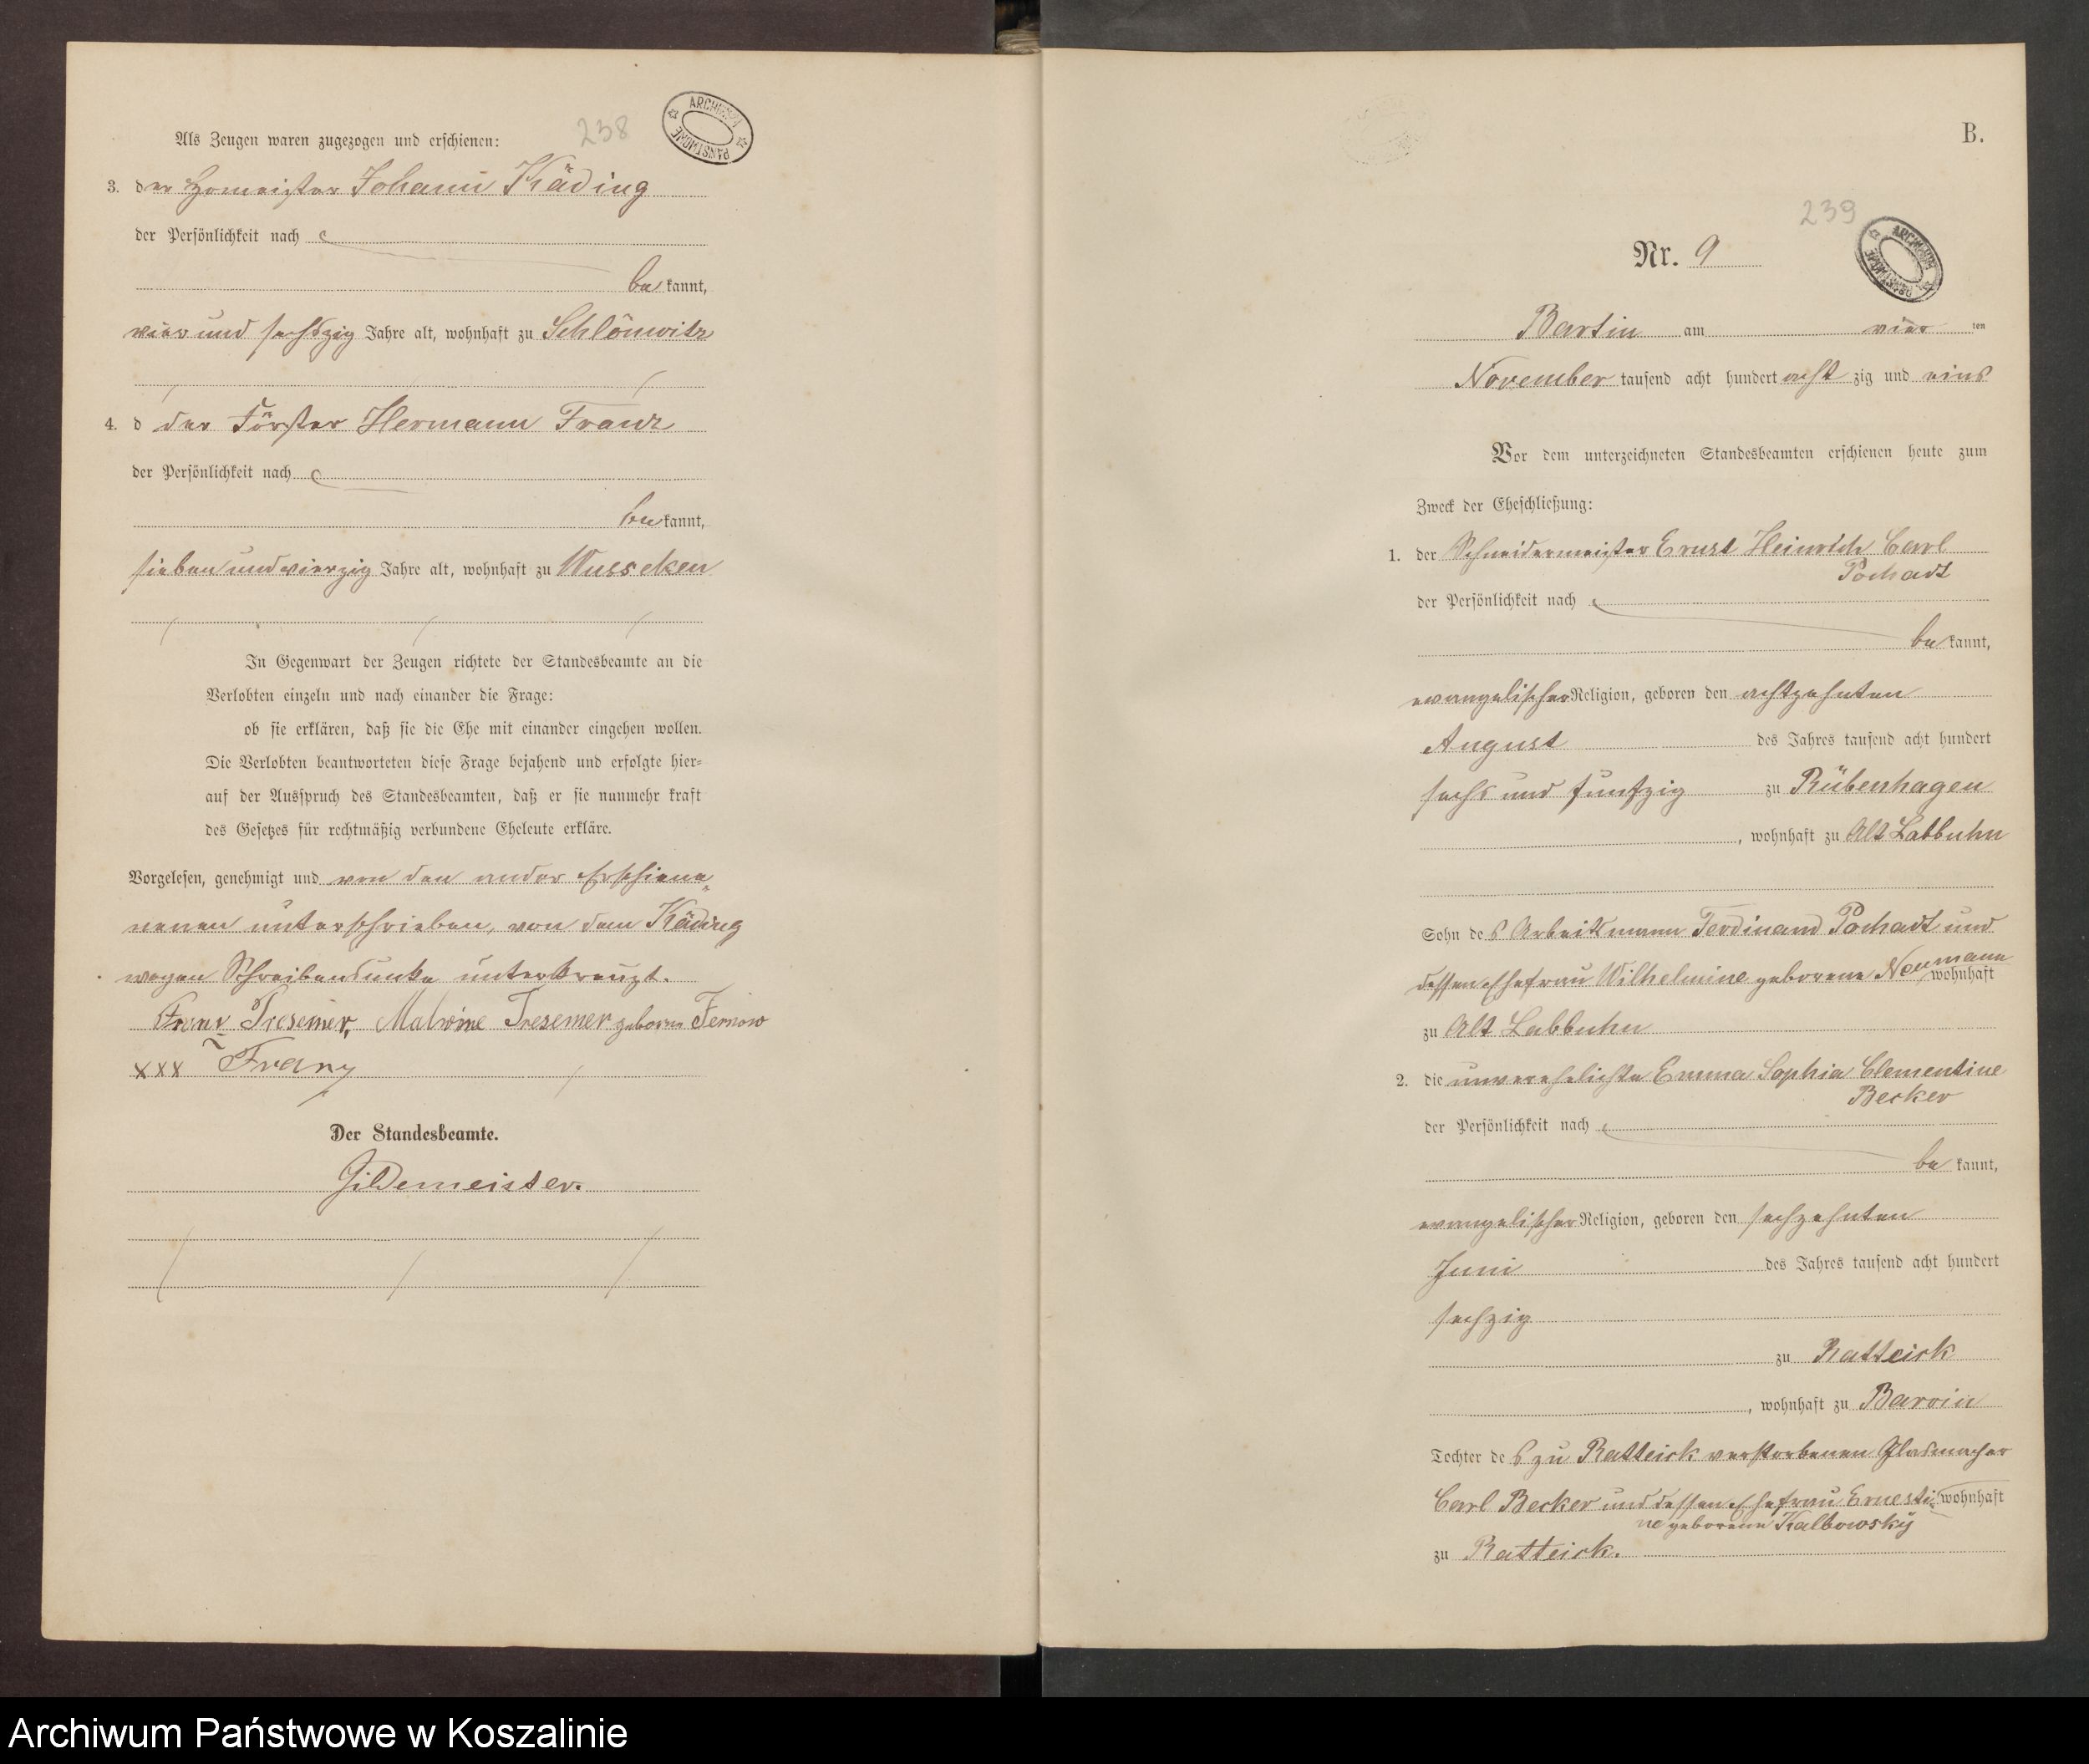 238
ARCHIWUM PAŃSTWOWE
Als Zeugen waren zugezogen und erschienen:
3. der Johann Käding
der Persönlichkeit nach
be kannt,
vier und sechszig Jahre alt, wohnhaft zu Schlönwitz
4. d der Förster Hermann Franz
der Persönlichkeit nach
be kannt,
sieben und vierzig Jahre alt, wohnhaft zu Wussecken
In Gegenwart der Zeugen richtete der Standesbeamte an die
Verlobten einzeln und nach einander die Frage:
ob sie erklären, daß sie die Ehe mit einander eingehen wollen.
Die Verlobten beantworteten diese Frage bejahend und erfolgte hier-
auf der Ausspruch des Standesbeamten, daß er sie nunmehr kraft
des Gesetzes für rechtmäßig verbundene Eheleute erkläre.
Vorgelesen, genehmigt und von den
unterschrieben, von dem Käding
wegen Schreibensunke unterkreuzt.
Franz Tresemer, Malwine Tresemer geborne Fernow
xxx Franz
Der Standesbeamte.
Gildemeister.
B.
239
ARCHIWUM PAŃSTWOWE
Nr. 9
Bartin am vier ten
November tausend acht hundert acht zig und eins
Vor dem unterzeichneten Standesbeamten erschienen heute zum
Zweck der Eheschließung:
1. der Schneidermeister Ernst Heinrich Carl
Pochadt
der Persönlichkeit nach
be kannt,
evangelischer Religion, geboren den achtzehnten
August des Jahres tausend acht hundert
sechs und funfzig zu Rübenhagen
, wohnhaft zu Alt Labbuhn
Sohn des Arbeitsmann Ferdinand Pochadt und
dessen Ehefrau Wilhelmine geborene Neumann wohnhaft
zu Alt Labbuhn
2. die unverehelichte Emma Sophia Clementine
Becker
der Persönlichkeit nach
be kannt,
evangelischer Religion, geboren den sechzehnten
Juni des Jahres tausend acht hundert
sechzig
zu Ratteick
, wohnhaft zu Barvin
Tochter des zu Ratteick verstorbenen Glasmacher
Carl Becker und dessen Ehefrau Ernesti- wohnhaft
ne geborene Kalbowsky
zu Ratteick.
Archiwum Państwowe w Koszalinie